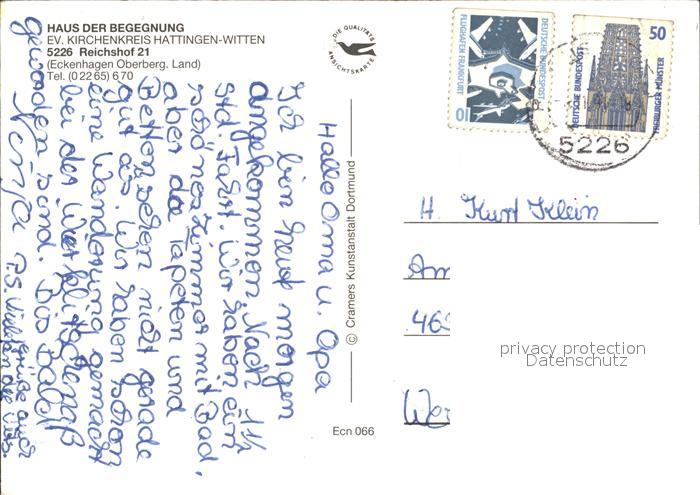 HAUS DER BEGEGNUNG
EV. KIRCHENKREIS HATTINGEN-WITTEN
5226 Reichshof 21
(Eckenhagen Oberberg. Land)
Tel. (0 22 65) 6 70
DIE QUALITÄTS
ANSICHTSKARTE
DEUTSCHE BUNDESPOST
FLUGHAFEN FRANKFURT
10
50
DEUTSCHE BUNDESPOST
FREIBURGER MÜNSTER
5226
Hallo Oma u. Opa
Ich bin heut morgen
angekommen. Nach 1 1/2
Std. Fahrt. Wir haben ein
schönes Zimmer mit Bad.
aber die Tapeten und
Betten sehen nicht gerade
gut aus. Wir haben schon
eine Wanderung gemacht
bei der wir klitschenaß
geworden sind. Bis Bald
P.S. Viele Grüße auch
an die Urs.
© Cramers Kunstanstalt Dortmund
Ecn 066
H. Kurt Klein
Am
463
We
privacy protection
Datenschutz